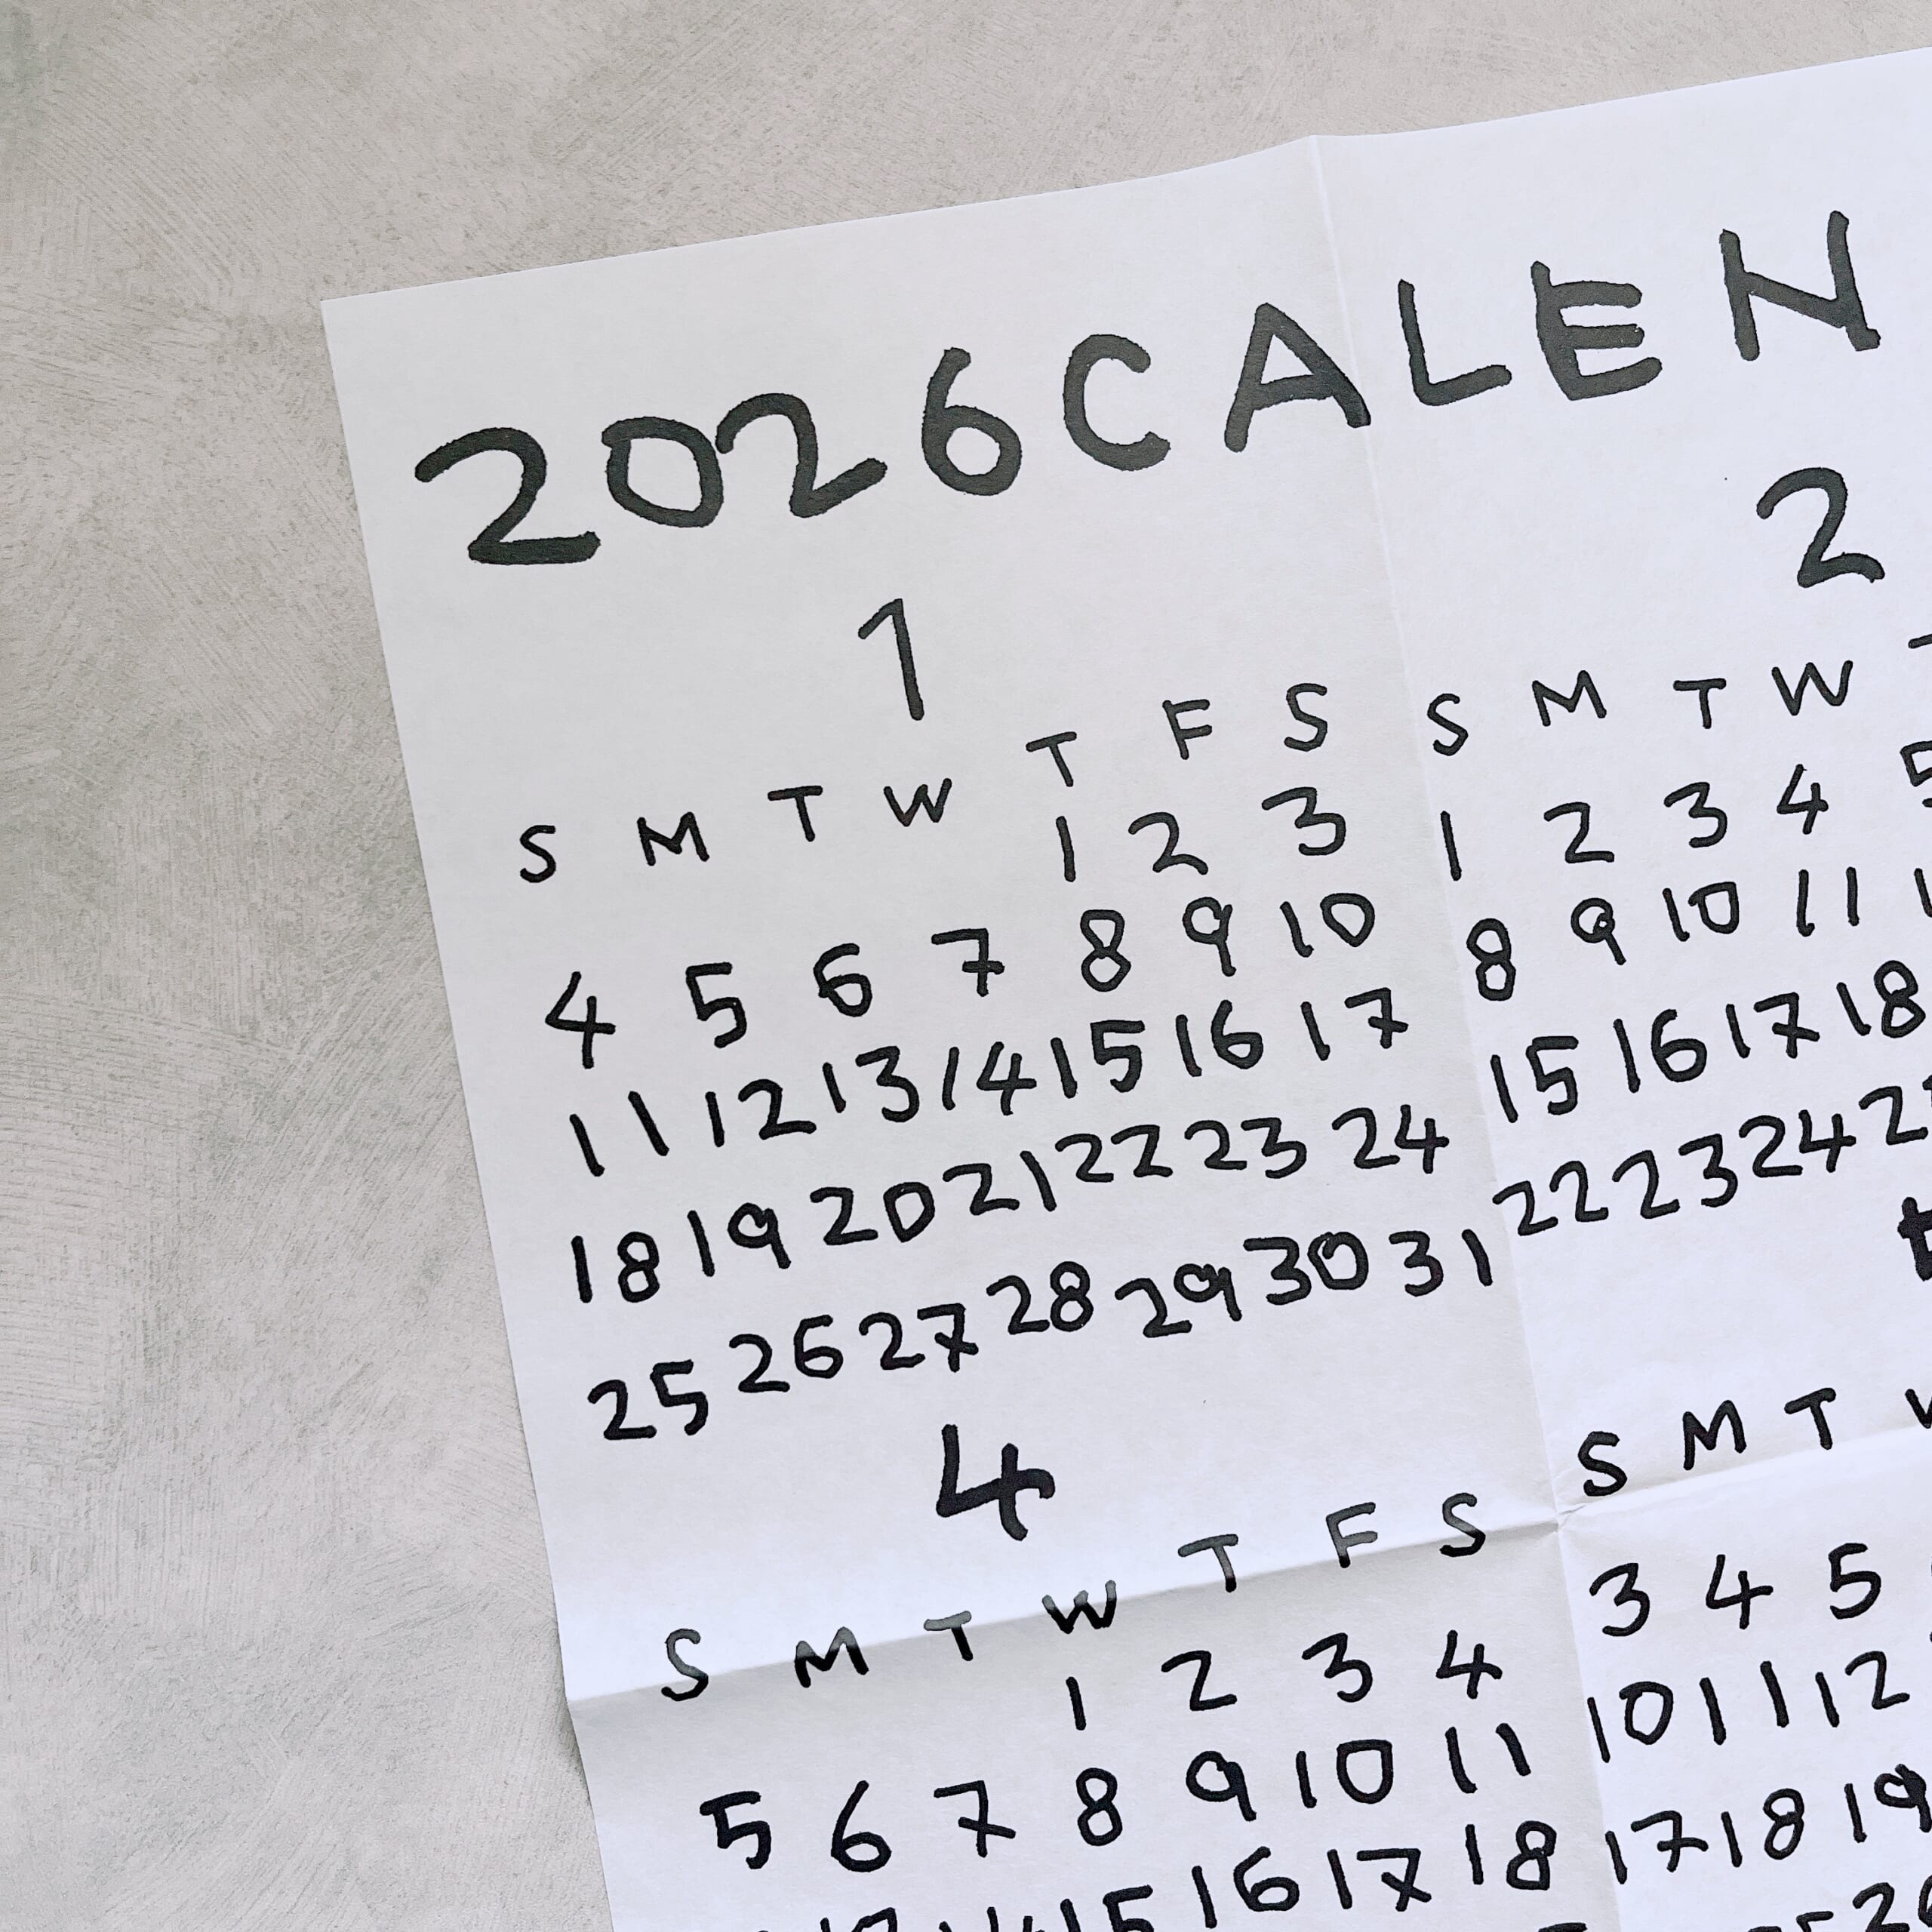 2026 CALEN
1
S M T W T F S
1 2 3
4 5 6 7 8 9 10
11 12 13 14 15 16 17
18 19 20 21 22 23 24
25 26 27 28 29 30 31
2
S M T W
1 2 3 4 5
8 9 10 11
15 16 17 18
22 23 24
4
S M T W T F S
1 2 3 4
5 6 7 8 9 10 11
15 16 17 18
S M T
3 4 5
10 11 12
17 18 19